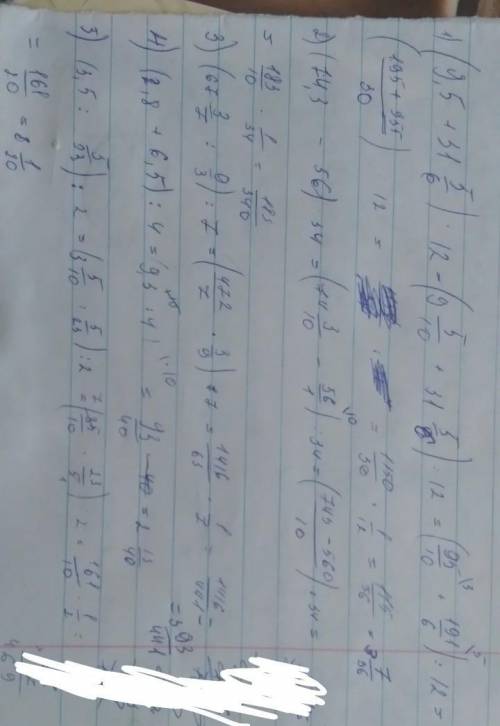 1) (9,5 + 31 5/6) : 12 = (9 5/10 + 31 5/6) : 12 = (95/10 + 191/6) : 12 =
12 = = 1240/30 · 1/12 =
2) (74,3 - 56) : 34 = (74 3/10 - 56/1) : 34 = (743 - 560 / 10) : 34 =
= 183/10 · 1/34 = 183/340
3) : 7 = (472/7 · 3/9) : 7 = 1416/63 · 1/7 = 1416/441 =
= 3 93/441
4) (2,8 + 6,5) : 4 = 9,3 : 4 = 93/40 = 2 13/40
5) (3,5 : 5/23) : 2 = (3 5/10 : 5/23) : 2 = (35/10 · 23/5) : 2 = 161/10 · 1/2 =
= 161/20 = 8 1/20